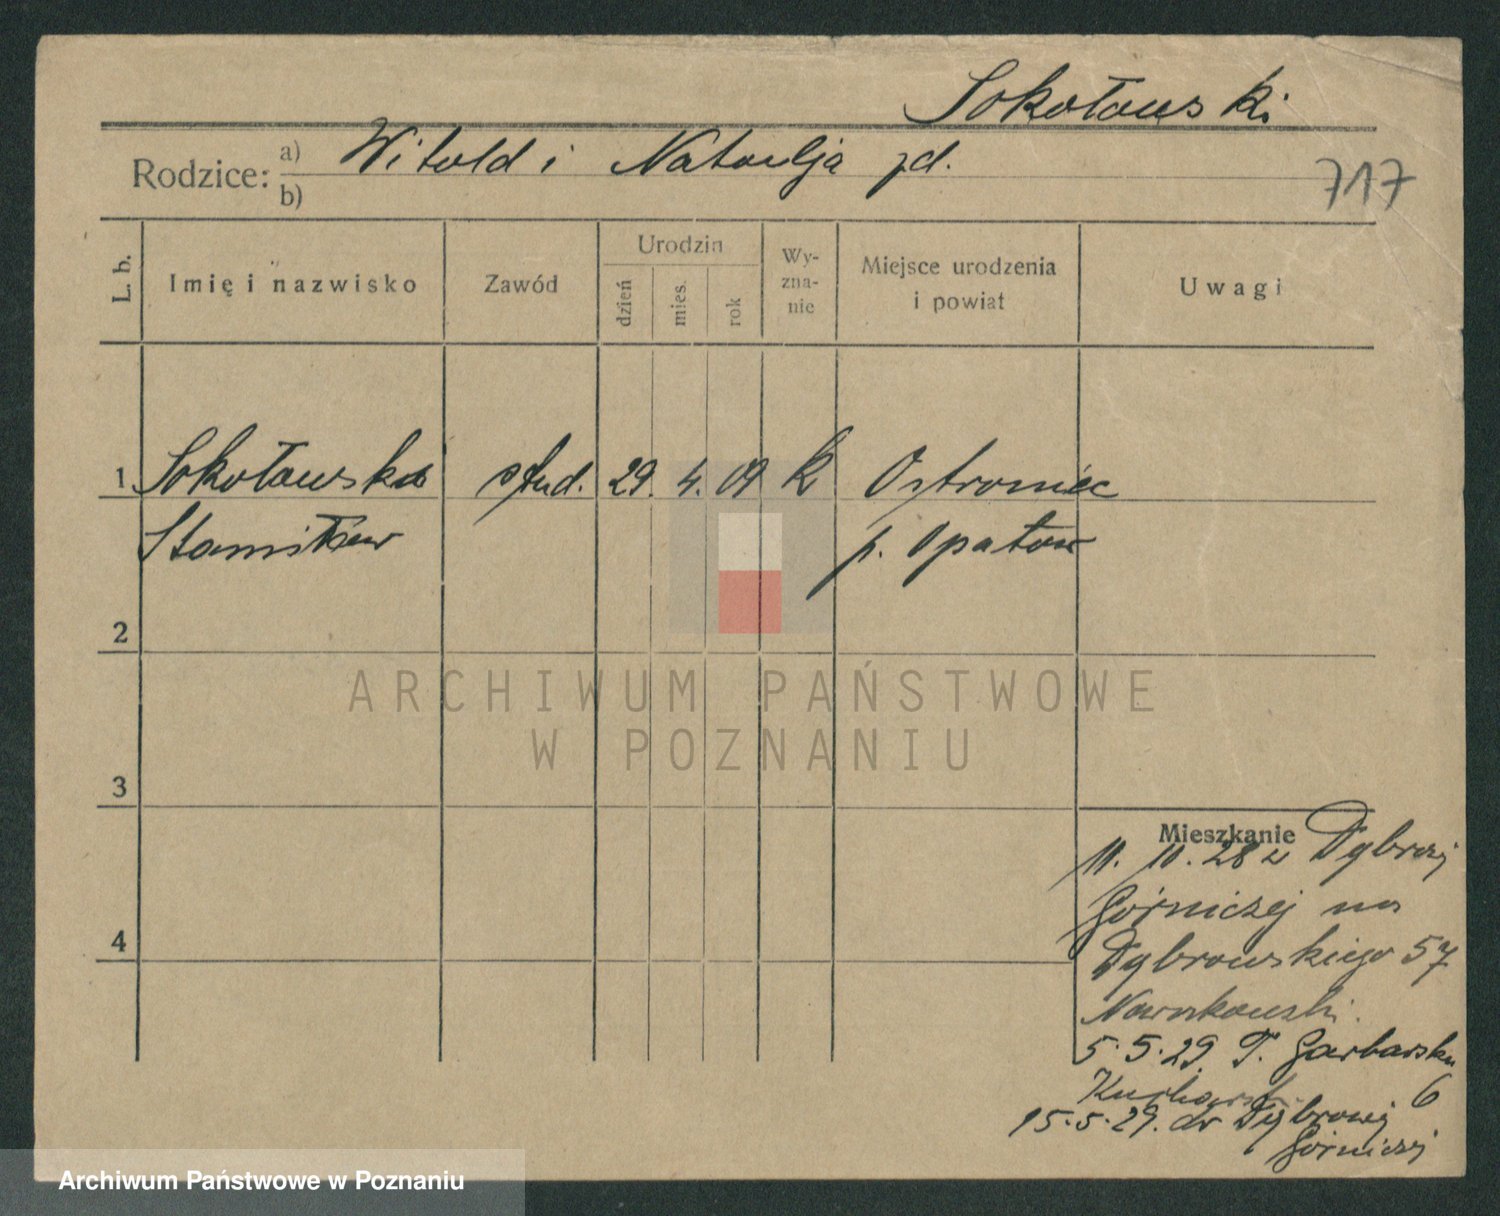 Sokołowski
Rodzice: a) Witold i Natalja zd.
b)
717
L. b.
Imię i nazwisko
Zawód
Urodzin
dzień
mies.
rok
Wy-
zna-
nie
Miejsce urodzenia
i powiat
Uwagi
1 Sokołowski stud. 29. 4. 09 k Ostrowiec
Stanisław p. Opatow
2
ARCHIWUM PAŃSTWOWE
W POZNANIU
3
Mieszkanie
11. 10. 28 z Dąbrowy
Górniczej na
Dąbrowskiego 57
5.5.29. T. Garbarska
6
15.5.29. do Dąbrowy
Górniczej
4
Archiwum Państwowe w Poznaniu